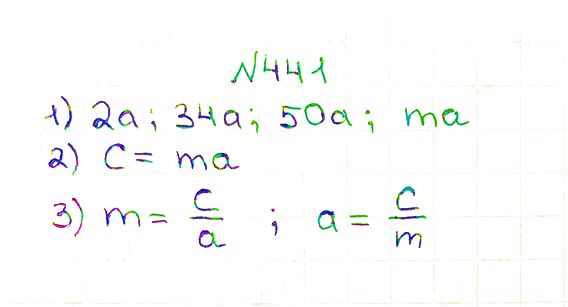 N441
1) 2a; 34a; 50a; ma
2) C = ma
3) m = C/a ; a = C/m